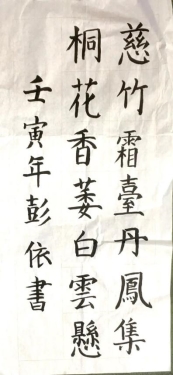 慈竹霜臺丹鳳集
桐花香萎白雲懸
壬寅年彭依書